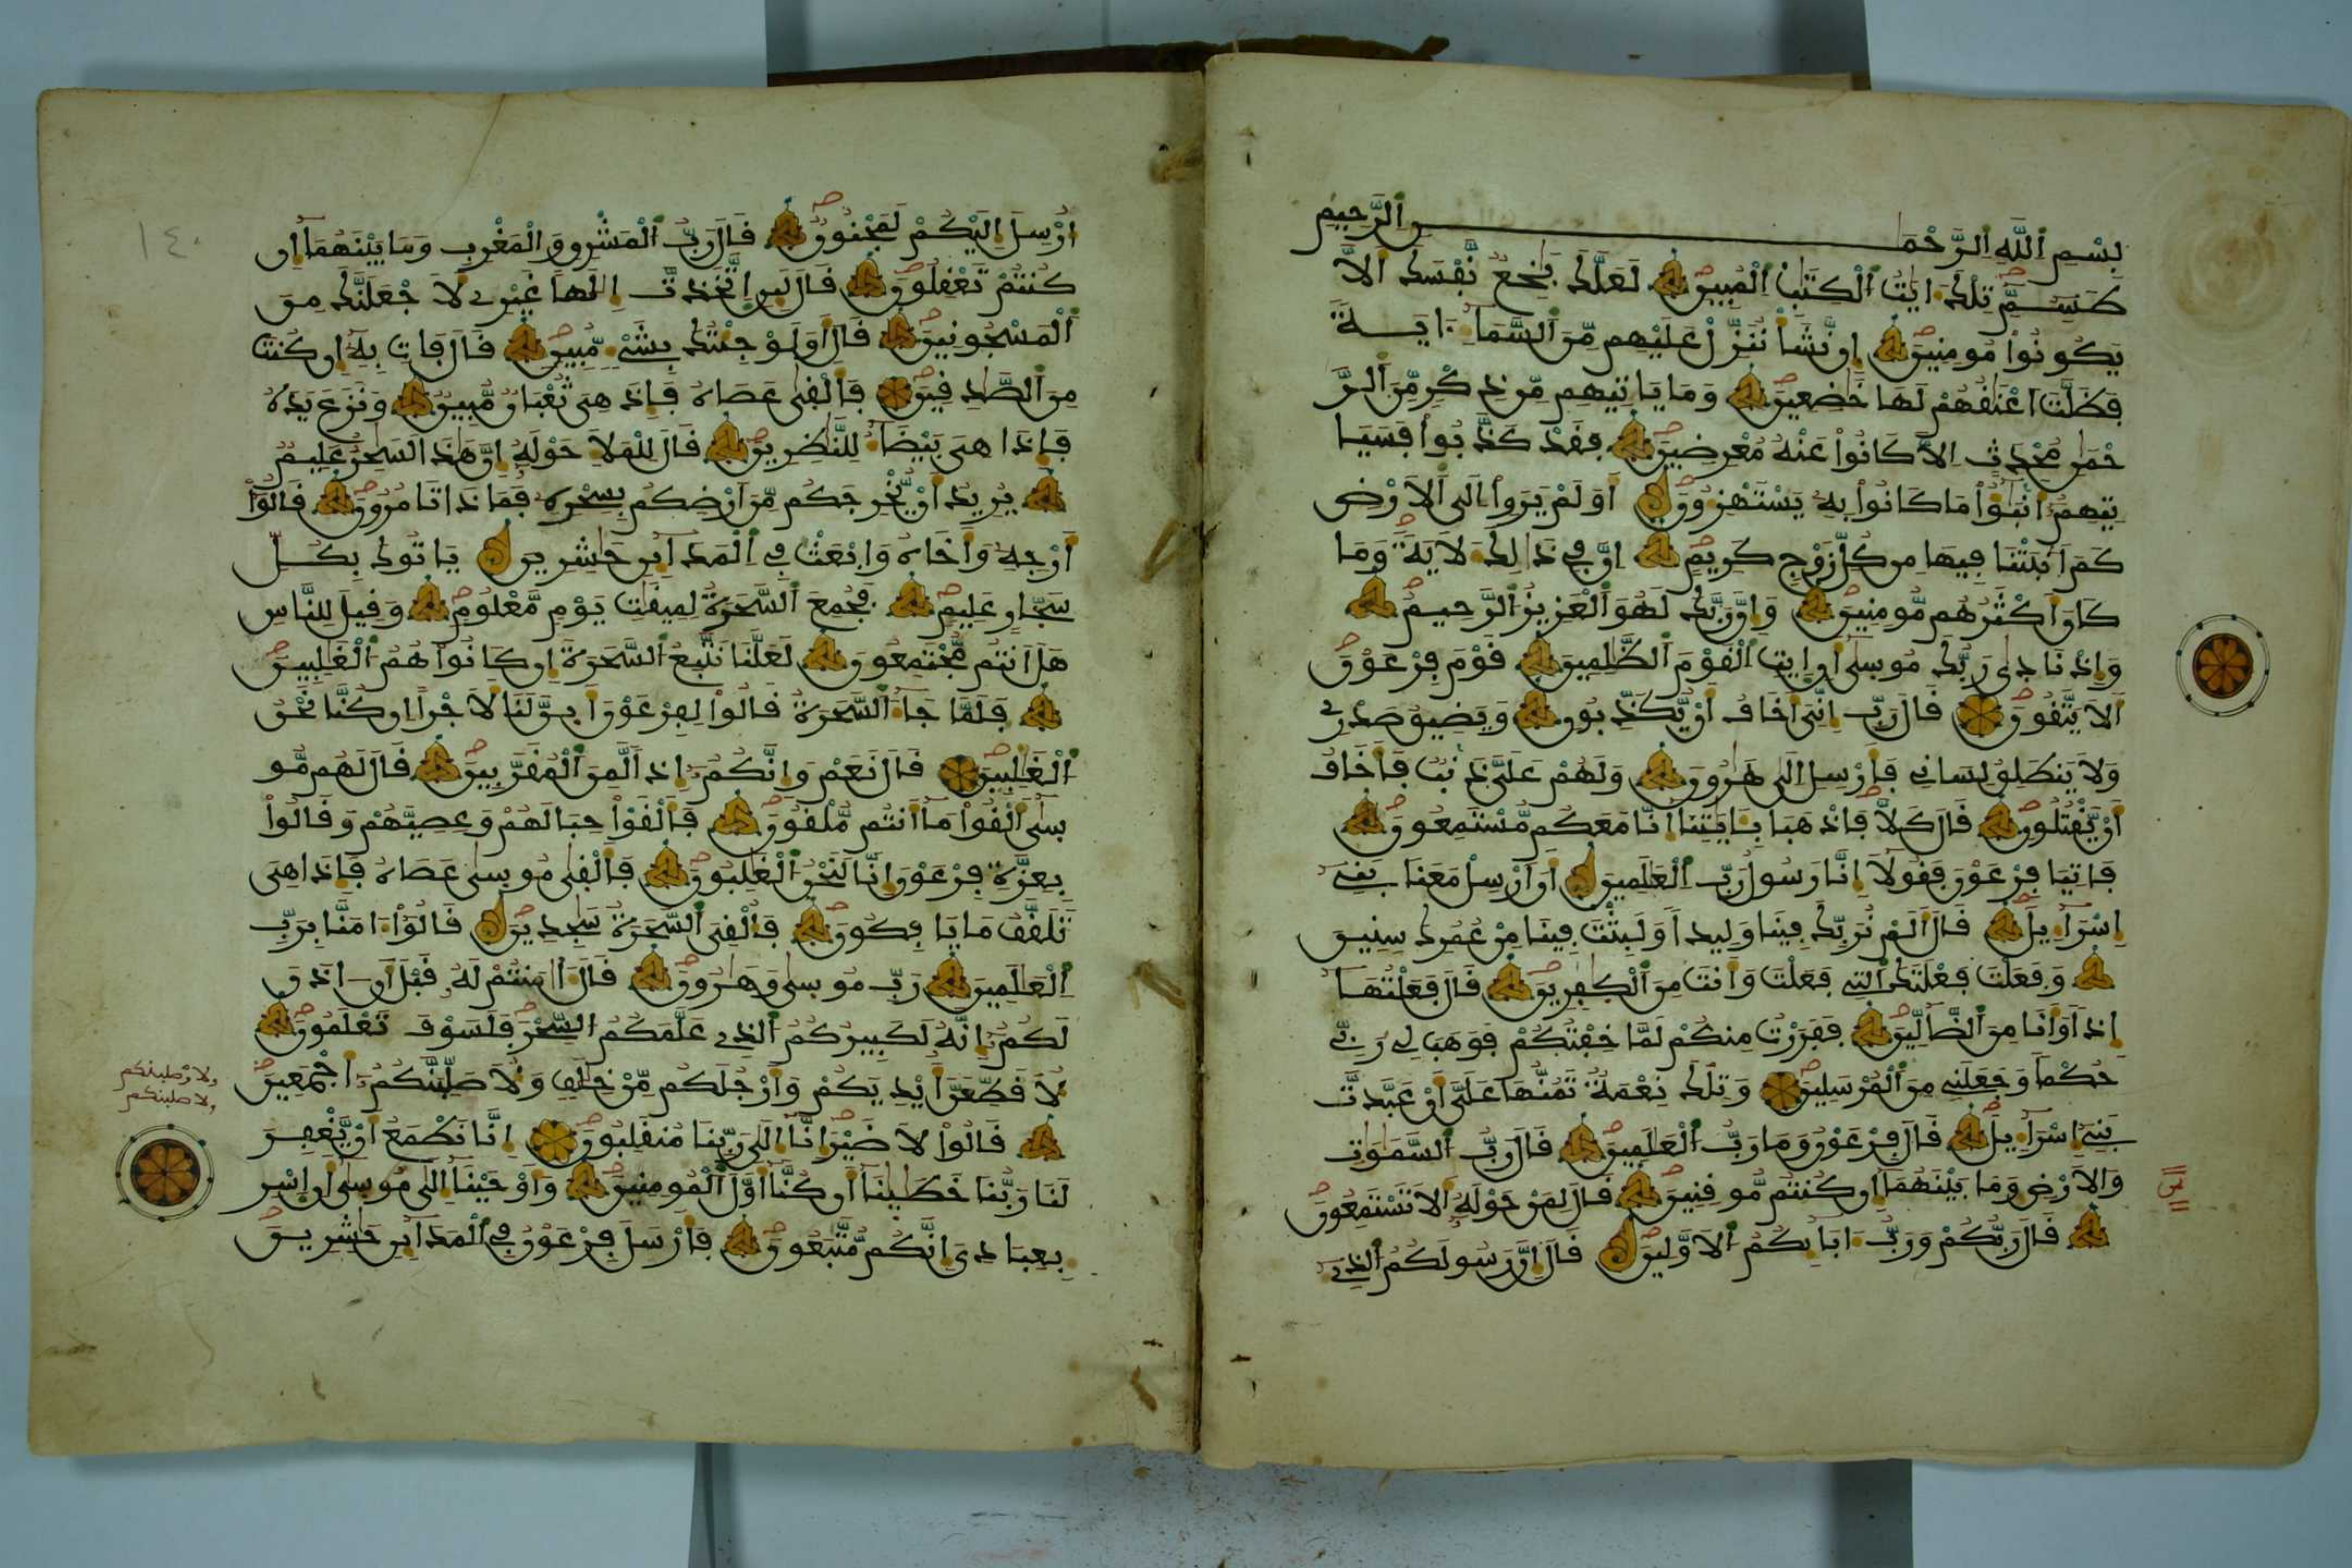 بِسْمِ اللَّهِ الرَّحْمَٰنِ الرَّحِيمِ
طَسِمِّ تِلْكَ ءَايَٰتُ الْكِتَٰبِ الْمُبِينِ لَعَلَّكَ بَٰخِعٌ نَّفْسَكَ أَلَّا
يَكُونُوا مُومِنِينَ إِن نَّشَأْ نُنَزِّلْ عَلَيْهِم مِّنَ السَّمَآءِ ءَايَةً
فَظَلَّتَ اعْنَٰقُهُمْ لَهَا خَٰضِعِينَ وَمَا يَاتِيهِم مِّن ذِكْرٍ مِّنَ الرَّ
حْمَٰنِ مُحْدَثٍ إِلَّا كَانُوا عَنْهُ مُعْرِضِينَ فَقَدْ كَذَّبُوا فَسَيَا
تِيهِمُ أَنۢبَٰٓؤُا مَا كَانُوا بِهِ يَسْتَهْزِءُونَ أَوَلَمْ يَرَوِا الَى الْأَرْضِ
كَمَ انۢبَتْنَا فِيهَا مِن كُلِّ زَوْجٍ كَرِيمٍ إِنَّ فِي ذَٰلِكَ لَأٓيَةً وَمَا
كَانَ أَكْثَرُهُم مُّومِنِينَ وَإِنَّ رَبَّكَ لَهُوَ الْعَزِيزُ الرَّحِيمُ
وَإِذْ نَادَىٰ رَبُّكَ مُوسَىٰ أَنِ ايتِ الْقَوْمَ الظَّٰلِمِينَ قَوْمَ فِرْعَوْنَ
أَلَا يَتَّقُونَ قَالَ رَبِّ إِنِّيَ أَخَافُ أَنْ يُّكَذِّبُونِ وَيَضِيقُ صَدْرِي
وَلَا يَنطَلِقُ لِسَانِي فَأَرْسِلِ الَىٰ هَٰرُونَ وَلَهُمْ عَلَيَّ ذَنۢبٌ فَأَخَافُ
أَنْ يَّقْتُلُونِ قَالَ كَلَّا فَاذْهَبَا بِـَٔايَٰتِنَا إِنَّا مَعَكُم مُّسْتَمِعُونَ
فَاتِيَا فِرْعَوْنَ فَقُولَا إِنَّا رَسُولُ رَبِّ الْعَٰلَمِينَ أَنَ ارْسِلْ مَعَنَا بَنِي
إِسْرَآءِيلَ قَالَ أَلَمْ نُرَبِّكَ فِينَا وَلِيدًا وَلَبِثْتَ فِينَا مِنْ عُمُرِكَ سِنِينَ
وَفَعَلْتَ فَعْلَتَكَ الَّتِي فَعَلْتَ وَأَنتَ مِنَ الْكَٰفِرِينَ قَالَ فَعَلْتُهَا
إِذًا وَأَنَا مِنَ الضَّآلِّينَ فَفَرَرْتُ مِنكُمْ لَمَّا خِفْتُكُمْ فَوَهَبَ لِي رَبِّي
حُكْمًا وَجَعَلَنِي مِنَ الْمُرْسَلِينَ وَتِلْكَ نِعْمَةٌ تَمُنُّهَا عَلَيَّ أَنْ عَبَّدتَّ
بَنِي إِسْرَآءِيلَ قَالَ فِرْعَوْنُ وَمَا رَبُّ الْعَٰلَمِينَ قَالَ رَبُّ السَّمَٰوَٰتِ
وَالْأَرْضِ وَمَا بَيْنَهُمَا إِن كُنتُم مُّوقِنِينَ قَالَ لِمَنْ حَوْلَهُ أَلَا تَسْتَمِعُونَ
قَالَ رَبُّكُمْ وَرَبُّ ءَابَآئِكُمُ الْأَوَّلِينَ قَالَ إِنَّ رَسُولَكُمُ الَّذِي
١٤٠
أُرْسِلَ إِلَيْكُمْ لَمَجْنُونٌ قَالَ رَبُّ الْمَشْرِقِ وَالْمَغْرِبِ وَمَا بَيْنَهُمَا إِن
كُنتُمْ تَعْقِلُونَ قَالَ لَئِنِ اتَّخَذتَّ إِلَٰهًا غَيْرِي لَأَجْعَلَنَّكَ مِنَ
الْمَسْجُونِينَ قَالَ أَوَلَوْ جِئْتُكَ بِشَيْءٍ مُّبِينٍ قَالَ فَاتِ بِهِ إِن كُنتَ
مِنَ الصَّٰدِقِينَ فَأَلْقَىٰ عَصَاهُ فَإِذَا هِيَ ثُعْبَانٌ مُّبِينٌ وَنَزَعَ يَدَهُ
فَإِذَا هِيَ بَيْضَآءُ لِلنَّٰظِرِينَ قَالَ لِلْمَلَإِ حَوْلَهُ إِنَّ هَٰذَا لَسَٰحِرٌ عَلِيمٌ
يُرِيدُ أَنْ يُّخْرِجَكُم مِّنَ أَرْضِكُم بِسِحْرِهِ فَمَاذَا تَامُرُونَ قَالُوا
أَرْجِهِ وَأَخَاهُ وَابْعَثْ فِي الْمَدَآئِنِ حَٰشِرِينَ يَاتُوكَ بِكُلِّ
سَحّارٍ عَلِيمٍ فَجُمِعَ السَّحَرَةُ لِمِيقَٰتِ يَوْمٍ مَّعْلُومٍ وَقِيلَ لِلنَّاسِ
هَلَ أَنتُم مُّجْتَمِعُونَ لَعَلَّنَا نَتَّبِعُ السَّحَرَةَ إِن كَانُوا هُمُ الْغَٰلِبِينَ
فَلَمَّا جَآءَ السَّحَرَةُ قَالُوا لِفِرْعَوْنَ أَئِنَّ لَنَا لَأَجْرًا إِن كُنَّا نَحْنُ
الْغَٰلِبِينَ قَالَ نَعَمْ وَإِنَّكُمُ إِذًا لَّمِنَ الْمُقَرَّبِينَ قَالَ لَهُم مُّو
سَىٰ أَلْقُوا مَا أَنتُم مُّلْقُونَ فَأَلْقَوْا حِبَالَهُمْ وَعِصِيَّهُمْ وَقَالُوا
بِعِزَّةِ فِرْعَوْنَ إِنَّا لَنَحْنُ الْغَٰلِبُونَ فَأَلْقَىٰ مُوسَىٰ عَصَاهُ فَإِذَا هِيَ
تَلَقَّفُ مَا يَافِكُونَ فَأُلْقِيَ السَّحَرَةُ سَٰجِدِينَ قَالُوا ءَامَنَّا بِرَبِّ
الْعَٰلَمِينَ رَبِّ مُوسَىٰ وَهَٰرُونَ قَالَ ءَامَنتُمْ لَهُ قَبْلَ أَنَ اذَنَ
لَكُمُ إِنَّهُ لَكَبِيرُكُمُ الَّذِي عَلَّمَكُمُ السِّحْرَ فَلَسَوْفَ تَعْلَمُونَ
لَأُقَطِّعَنَّ أَيْدِيَكُمْ وَأَرْجُلَكُم مِّنْ خِلَٰفٍ وَلَأُصَلِّبَنَّكُمُ أَجْمَعِينَ
ولاوصلبنكم
ولاصلبنكم
قَالُوا لَا ضَيْرَ إِنَّا إِلَىٰ رَبِّنَا مُنقَلِبُونَ إِنَّا نَطْمَعُ أَنْ يَّغْفِرَ
لَنَا رَبُّنَا خَطَٰيَٰنَا أَن كُنَّا أَوَّلَ الْمُومِنِينَ وَأَوْحَيْنَا إِلَىٰ مُوسَىٰ أَنِ اسْرِ
بِعِبَادِيَ إِنَّكُم مُّتَّبَعُونَ فَأَرْسَلَ فِرْعَوْنُ فِي الْمَدَآئِنِ حَٰشِرِينَ